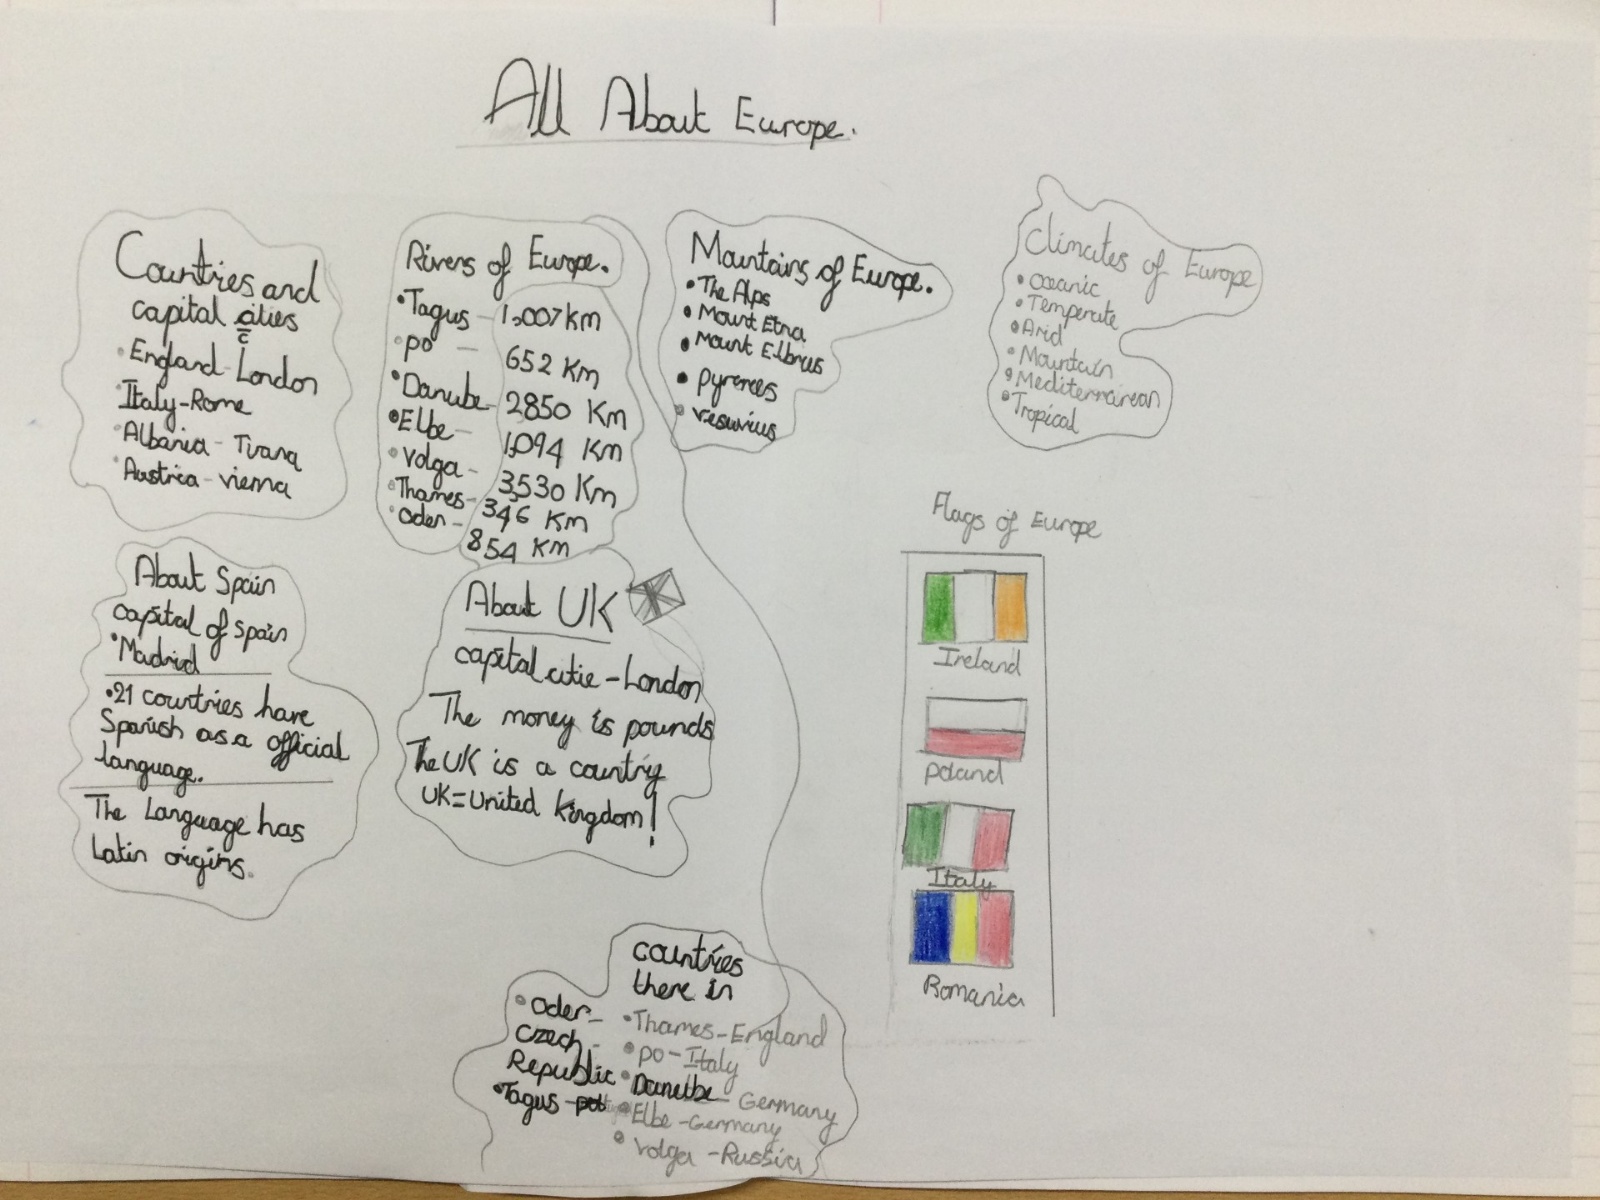 All About Europe.
Countries and
capital cities
c
• England-London
Italy-Rome
• Albania - Tirana
• Austria - vienna
Rivers of Europe.
• Tagus - 1,007 km
• po - 652 Km
• Danube - 2850 Km
• Elbe - 1,094 Km
• volga - 3,530 Km
• Thames - 346 Km
• oder - 854 Km
Mountains of Europe.
• The Alps
• Mount Etna
• Mount Elbrus
• pyrenees
• vesuvius
climates of Europe
• oceanic
• Temperate
• Arid
• Mountain
• Mediterrainean
• Tropical
About Spain
capital of spain
• Madrid
• 21 countries have
Spanish as a official
language.
The Language has
Latin origins.
About UK
capital citie - London
The money is pounds
The UK is a country
UK = United kingdom!
Flags of Europe
Ireland
poland
Italy
Romania
countries
there in
• oder -
czech -
Republic
• Tagus -
• Thames - England
• po - Italy
• Danube - Germany
• Elbe - Germany
• volga - Russia